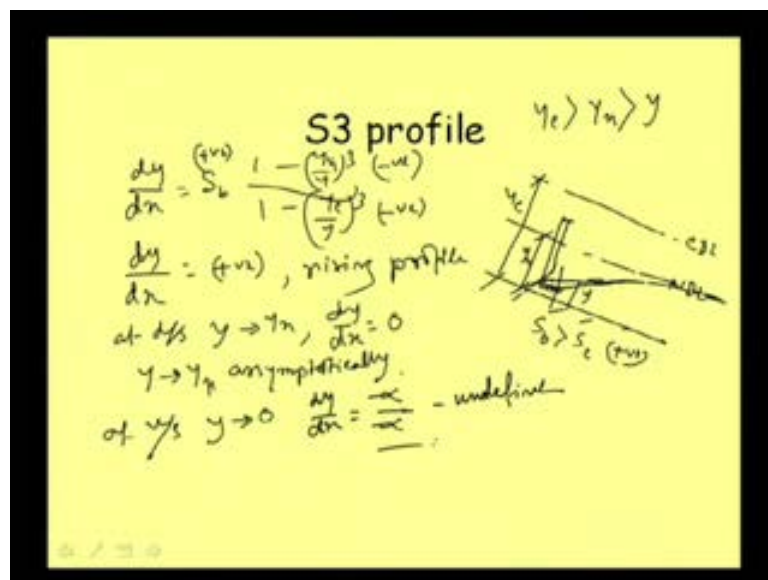 S3 profile
yc > yn > y
dy/dx = Sb (+ve) 1 - (yn/y)^3 (-ve) / 1 - (yc/y)^3 (-ve)
dy/dx = (+ve), rising profile
at d/s y → yn, dy/dx = 0
y → yn asymptotically.
at u/s y → 0 dy/dx = -∝/-∝ - undefine
yc
CDL
NDL
y
S0 > Sc (+ve)